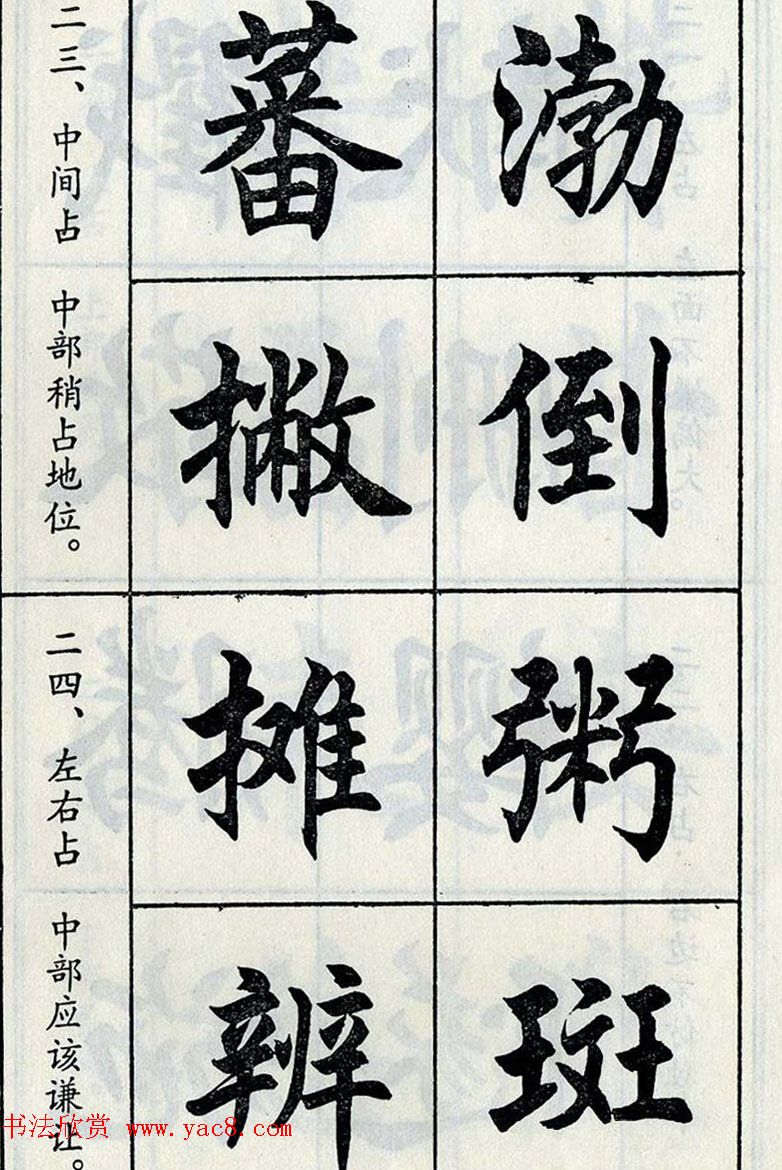 二三、中间占
中部稍占地位。
蕃 渤
撇 倒
二四、左右占
中部应该谦让。
摊 粥
辨 斑
书法欣赏 www.yac8.com